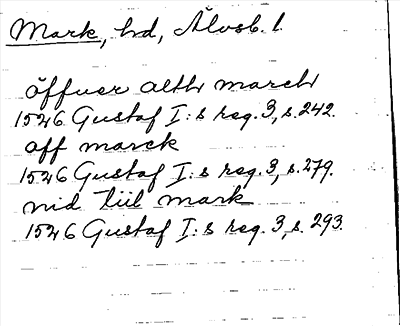 Mark, hd, Älvsb. l.
öffuer alth march
1526 Gustaf I:s reg. 3, s. 242.
aff marck
1526 Gustaf I:s reg. 3, s. 279.
nid tiil mark
1526 Gustaf I:s reg. 3, s. 293.